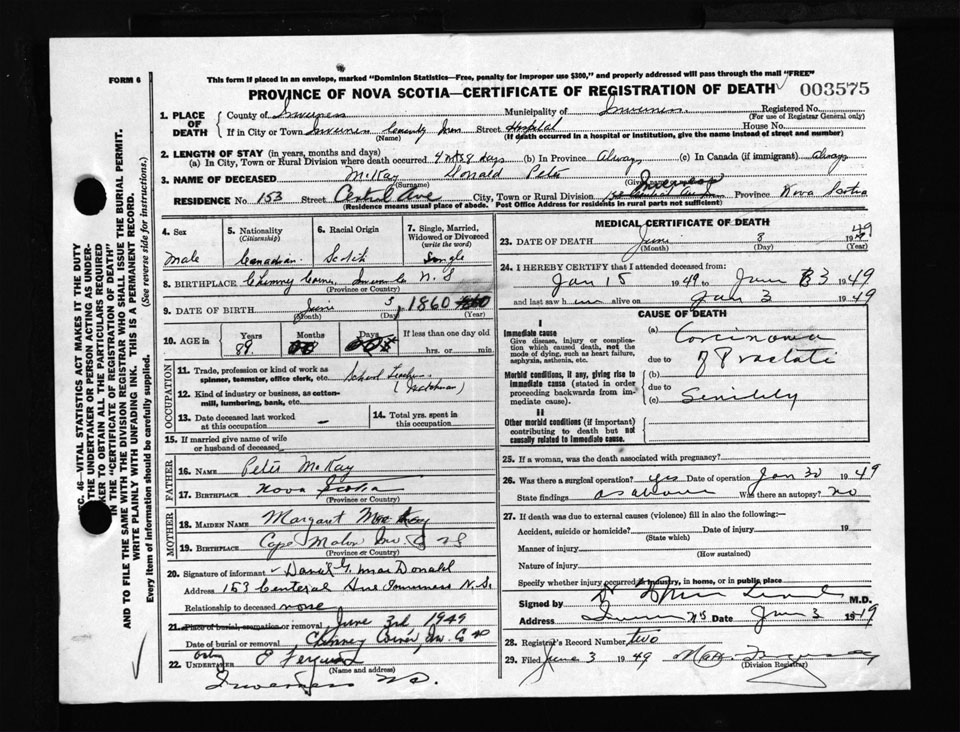 FORM 6
This form if placed in an envelope, marked "Dominion Statistics—Free, penalty for improper use $300," and properly addressed will pass through the mail "FREE"
PROVINCE OF NOVA SCOTIA—CERTIFICATE OF REGISTRATION OF DEATH
003575
1. PLACE OF DEATH
County of Inverness Municipality of Inverness Registered No.
(For use of Registrar General only)
If in City or Town Inverness County Mem Street Hospital House No.
(Name) (If death occurred in a hospital or institution, give the name instead of street and number)
2. LENGTH OF STAY (in years, months and days)
(a) In City, Town or Rural Division where death occurred 4 mts 8 days (b) In Province Always (c) In Canada (if immigrant) Always
3. NAME OF DECEASED McKay Donald Peter
(Surname)
RESIDENCE No. 153 Street Central Ave City, Town or Rural Division Inverness Province Nova Scotia
(Residence means usual place of abode. Post Office Address for residents in rural parts not sufficient)
4. Sex
Male
5. Nationality
(Citizenship)
Canadian
6. Racial Origin
Scotch
7. Single, Married, Widowed or Divorced
(write the word)
Single
8. BIRTHPLACE Chimney Corner, Inverness Co N. S
(Province or Country)
9. DATE OF BIRTH June 3 1860
(Month) (Day) (Year)
10. AGE in
Years
89
Months
Days
If less than one day old
hrs. or min.
OCCUPATION
11. Trade, profession or kind of work as spinner, teamster, office clerk, etc. School Teacher
12. Kind of industry or business, as cotton-mill, lumbering, bank, etc.
13. Date deceased last worked at this occupation –
14. Total yrs. spent in this occupation
15. If married give name of wife or husband of deceased
FATHER
16. NAME Peter McKay
17. BIRTHPLACE Nova Scotia
(Province or Country)
MOTHER
18. MAIDEN NAME Margaret
19. BIRTHPLACE Cape Mabou Inv. Co NS
(Province or Country)
20. Signature of informant Daniel G. MacDonald
Address 153 Centeral Ave Inverness N. S.
Relationship to deceased none
21. Place of burial, cremation or removal June 3rd 1949
Date of burial or removal Chimney Corner, Inv. Co NS
22. UNDERTAKER
(Name and address)
Inverness NS.
MEDICAL CERTIFICATE OF DEATH
23. DATE OF DEATH June 3 1949
(Month) (Day) (Year)
24. I HEREBY CERTIFY that I attended deceased from:
Jan 15 1949 to June 3 1949
and last saw him alive on June 3 1949
CAUSE OF DEATH
I
Immediate cause
Give disease, injury or complication which caused death, not the mode of dying, such as heart failure, asphyxia, asthenia, etc.
(a) Carcinoma
due to of Prostate
Morbid conditions, if any, giving rise to immediate cause (stated in order proceeding backwards from immediate cause).
(b)
due to
(c) Senility
II
Other morbid conditions (if important) contributing to death but not causally related to immediate cause.
25. If a woman, was the death associated with pregnancy?
26. Was there a surgical operation? yes Date of operation Jan 30 1949
State findings as above Was there an autopsy? no
27. If death was due to external causes (violence) fill in also the following:—
Accident, suicide or homicide? Date of injury 19
(State which)
Manner of injury
(How sustained)
Nature of injury
Specify whether injury occurred in industry, in home, or in public place
Signed by Dr M.D.
Address NS Date June 3 1949
28. Registrar's Record Number two
29. Filed June 3 1949
(Division Registrar)
SEC. 46—VITAL STATISTICS ACT MAKES IT THE DUTY
OF THE UNDERTAKER OR PERSON ACTING AS UNDER-
TAKER TO OBTAIN ALL THE PARTICULARS REQUIRED
IN THE "CERTIFICATE OF REGISTRATION OF DEATH"
AND TO FILE THE SAME WITH THE DIVISION REGISTRAR WHO SHALL ISSUE THE BURIAL PERMIT.
WRITE PLAINLY WITH UNFADING INK. THIS IS A PERMANENT RECORD.
Every item of information should be carefully supplied. (See reverse side for instructions.)